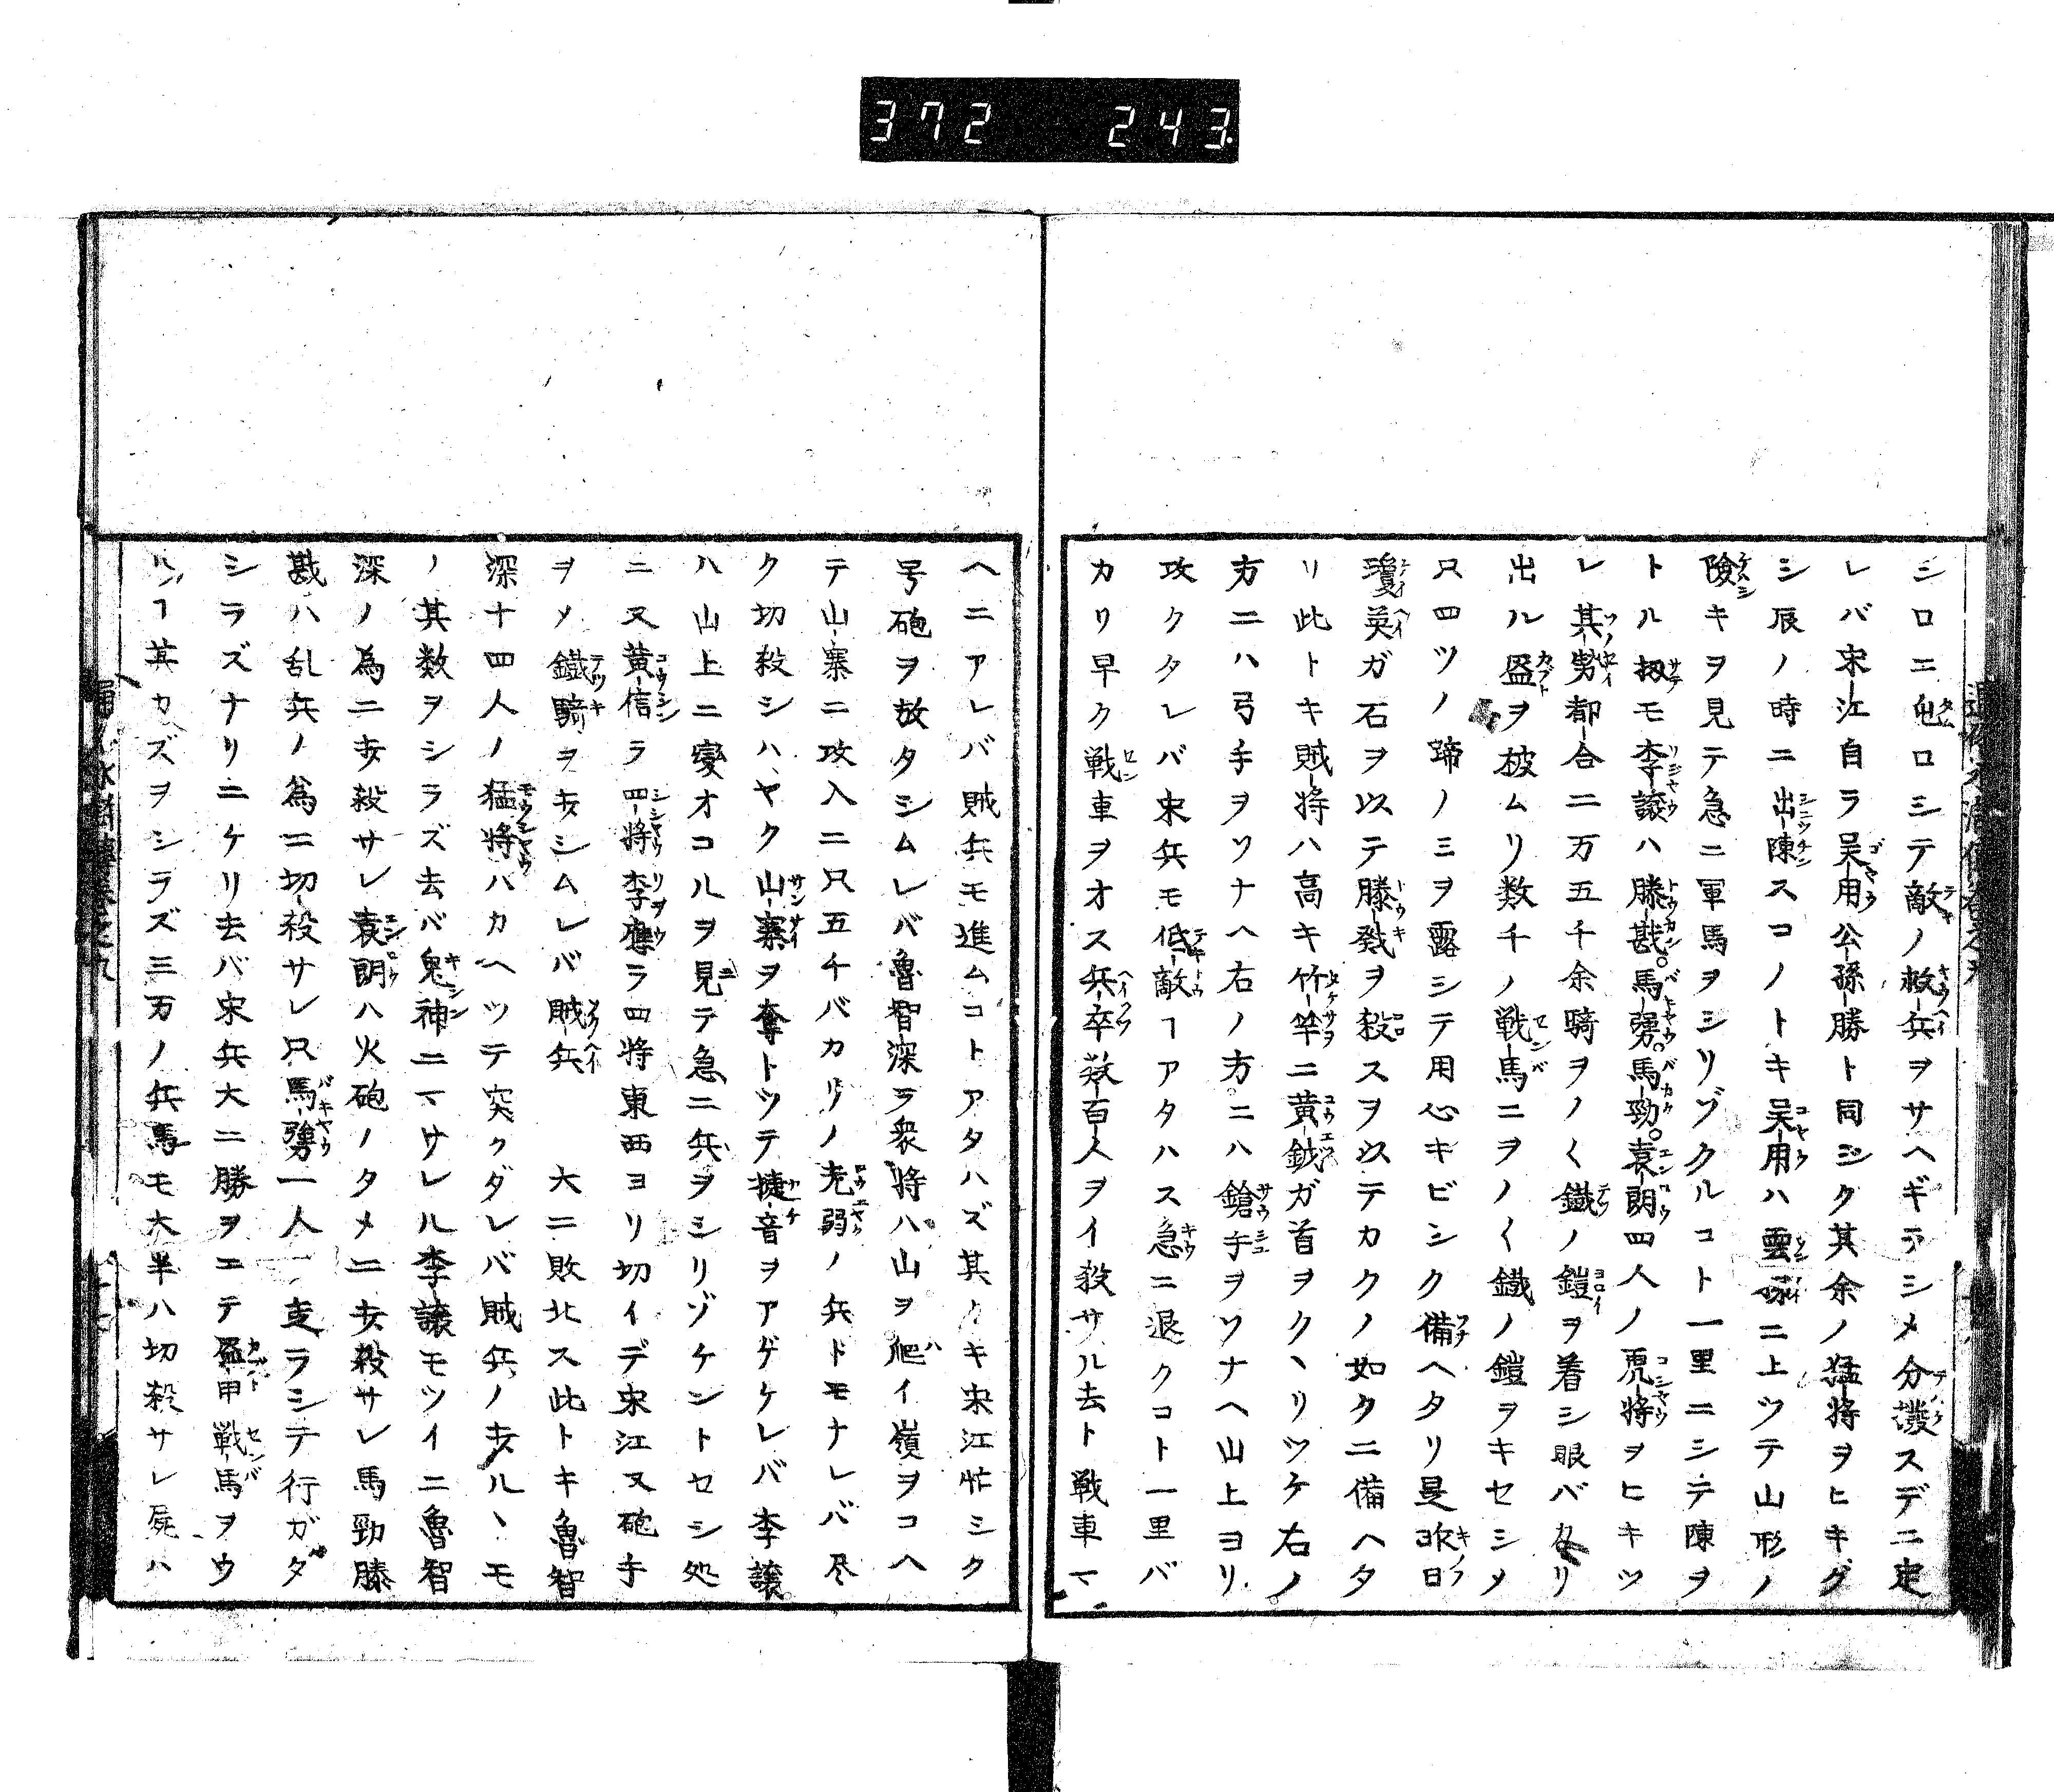 372 243
シロニ屯ロシテ敵ノ救兵ヲサヘギラシメ分撥スデニ定
レバ宋江自ラ呉用公孫勝ト同シク其余ノ猛将ヲヒキグ
シ辰ノ時ニ出陳スコノトキ呉用ハ雲梯ニ上ツテ山形ノ
險キヲ見テ急ニ軍馬ヲシリゾクルコト一里ニシテ陳ヲ
トル扨モ李譲ハ滕戡馬彊馬勁袁朗四人ノ虎将ヲヒキツ
レ其勢都合二万五千余騎ヲノ〱鐵ノ鎧ヲ着シ眼バカリ
出ル盔ヲ被ムリ数千ノ戦馬ニヲノ〱鐡ノ鎧ヲキセシメ
只四ツノ蹄ノミヲ露シテ用心キビシク備ヘタリ是昨日
瓊英ガ石ヲ以テ滕戣ヲ殺スヲ以テカクノ如クニ備ヘタ
リ此トキ賊将ハ高キ竹竿ニ黄鉞ガ首ヲクヽリツケ右ノ
方ニハ弓手ヲソナヘ右ノ方ニハ鎗手ヲソナヘ山上ヨリ
攻クタレバ宋兵モ低敵ヿアタハス急ニ退クコト一里バ
カリ早ク戦車ヲオス兵卒数百人ヲイ殺サル去ト戦車マ
ヘニアレバ賊兵モ進ムコトアタハズ其トキ宋江忙シク
号砲ヲ放タシムレバ魯智深ラ衆将ハ山ヲ爬イ嶺ヲコヘ
テ山寨ニ攻入ニ只五千バカリノ老弱ノ兵ドモナレバ尽
ク切殺シハヤク山寨ヲ奪トツテ捷音ヲアゲケレバ李譲
ハ山上ニ變オコルヲ見テ急ニ兵ヲシリゾケントセシ処
ニ又黄信ラ四将李應ラ四将東西ヨリ切イデ宋江又砲手
ヲメ鐵騎ヲ打シムレバ賊兵 大ニ敗北ス此トキ魯智
深十四人ノ猛将ハカヘツテ突クダレバ賊兵ノ打ルヽモ
ノ其数ヲシラズ去バ鬼神ニマサレル李譲モツイニ魯智
深ノ為ニ打殺サレ袁朗ハ火砲ノタメニ打殺サレ馬勁滕
戡ハ乱兵ノ為ニ切殺サレ只馬彊一人走ラシテ行ガタ
シラズナリニケリ去バ宋兵大ニ勝ヲエテ盔甲戦馬ヲウ
ハフヿ其カズヲシラズ三万ノ兵馬モ大半ハ切殺サレ屍ハ